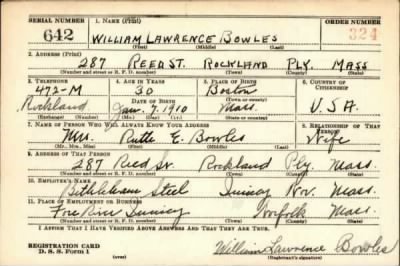 SERIAL NUMBER 1. NAME (Print) ORDER NUMBER
642 WILLIAM LAWRENCE BOWLES 324
(First) (Middle) (Last)
2. ADDRESS (Print)
287 REED ST. ROCKLAND PLY. MASS
(Number and street or R. F. D. number) (Town) (County) (State)
3. TELEPHONE 4. AGE IN YEARS 5. PLACE OF BIRTH 6. COUNTRY OF CITIZENSHIP
472-M 30 Boston
Rockland DATE OF BIRTH (Town or county)
Jan. 7, 1910 Mass. U.S.A.
(Exchange) (Number) (Mo.) (Day) (Yr.) (State or country)
7. NAME OF PERSON WHO WILL ALWAYS KNOW YOUR ADDRESS 8. RELATIONSHIP OF THAT PERSON
Mrs. Ruth E. Bowles Wife
(Mr., Mrs., Miss) (First) (Middle) (Last)
9. ADDRESS OF THAT PERSON
287 Reed St. Rockland Ply. Mass.
(Number and street or R. F. D. number) (Town) (County) (State)
10. EMPLOYER'S NAME
Bethlehem Steel Quincy Nor. Mass.
11. PLACE OF EMPLOYMENT OR BUSINESS
Fore River Quincy Norfolk Mass.
(Number and street or R. F. D. number) (Town) (County) (State)
I AFFIRM THAT I HAVE VERIFIED ABOVE ANSWERS AND THAT THEY ARE TRUE.
REGISTRATION CARD
D. S. S. Form 1 (over) William Lawrence Bowles
(Registrant's signature)